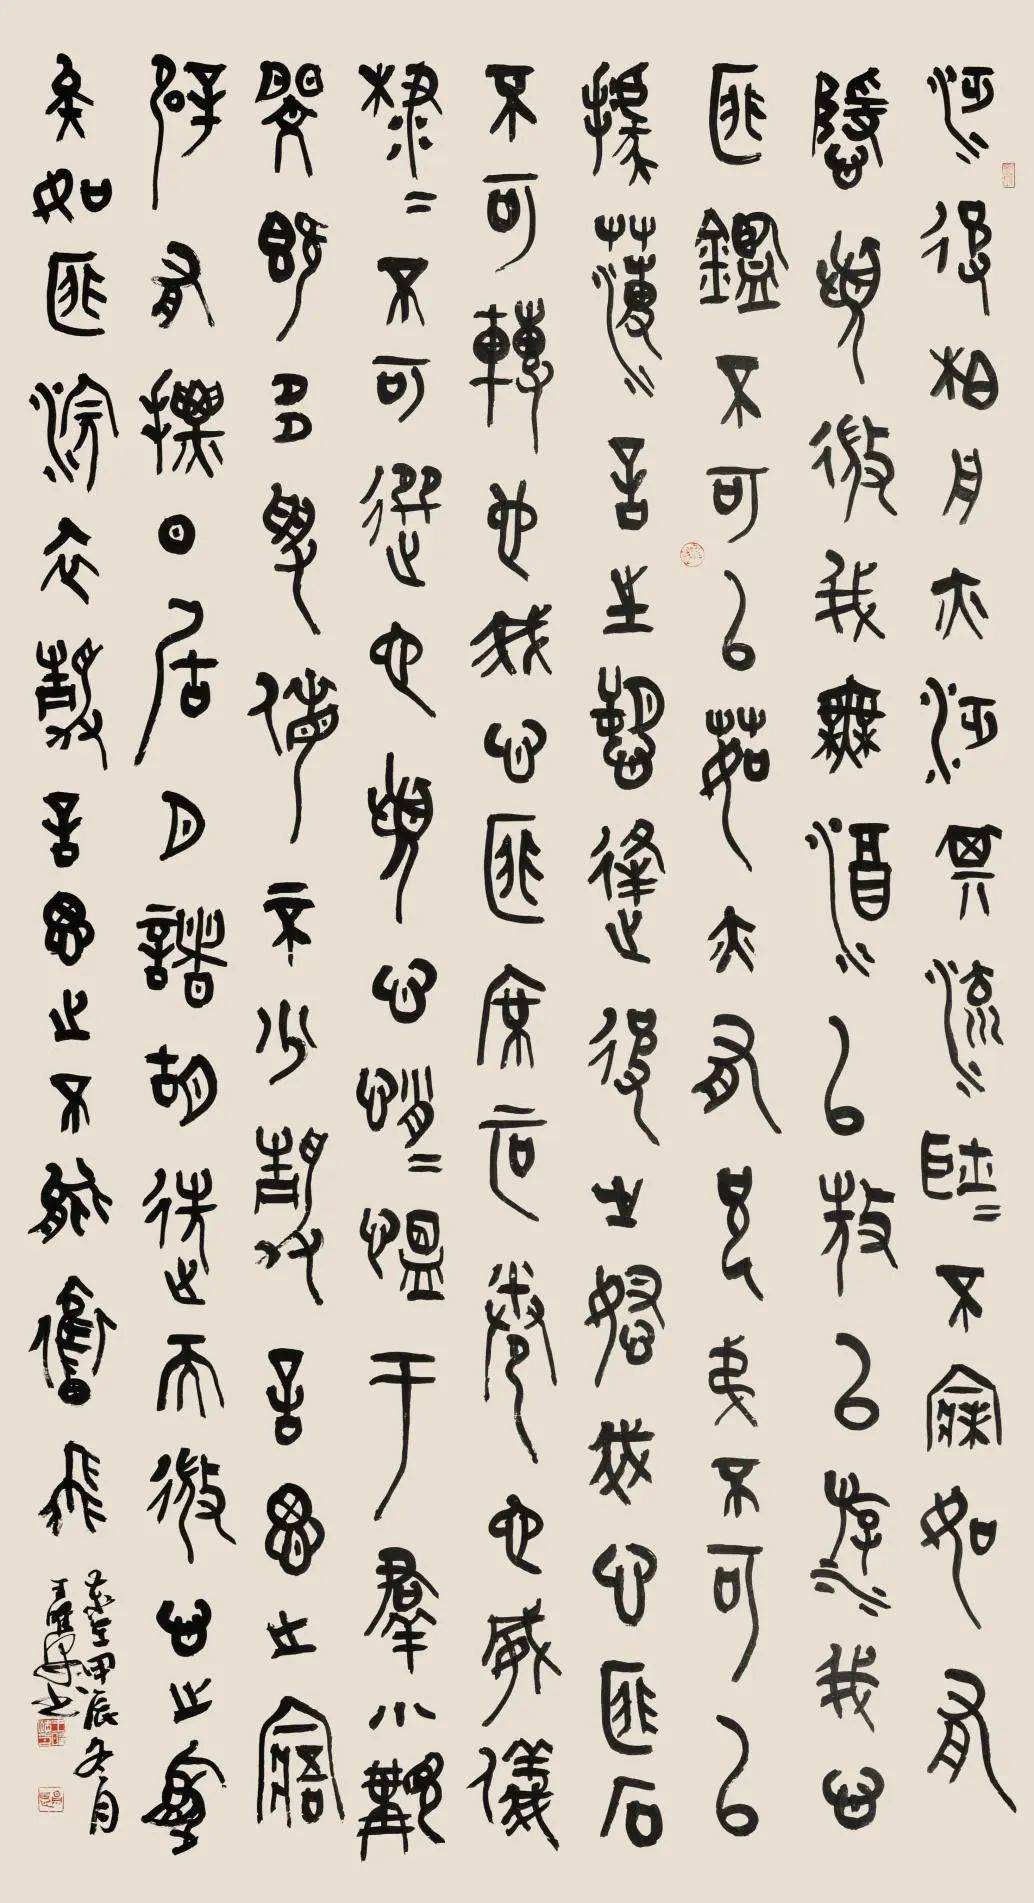 泛彼柏舟亦泛其流耿〓不寐如有
隱憂微我無酒以敖以遊我心
匪鑒不可以茹亦有兄弟不可以
據薄言往愬逢彼之怒我心匪石
不可轉也我心匪席不可卷也威儀
棣〓不可選也憂心悄〓慍于群小覯
閔既多受侮不少靜言思之寤
辟有摽日居月諸胡迭而微心之憂
矣如匪浣衣靜言思之不能奮飛
歲在甲辰冬月
王